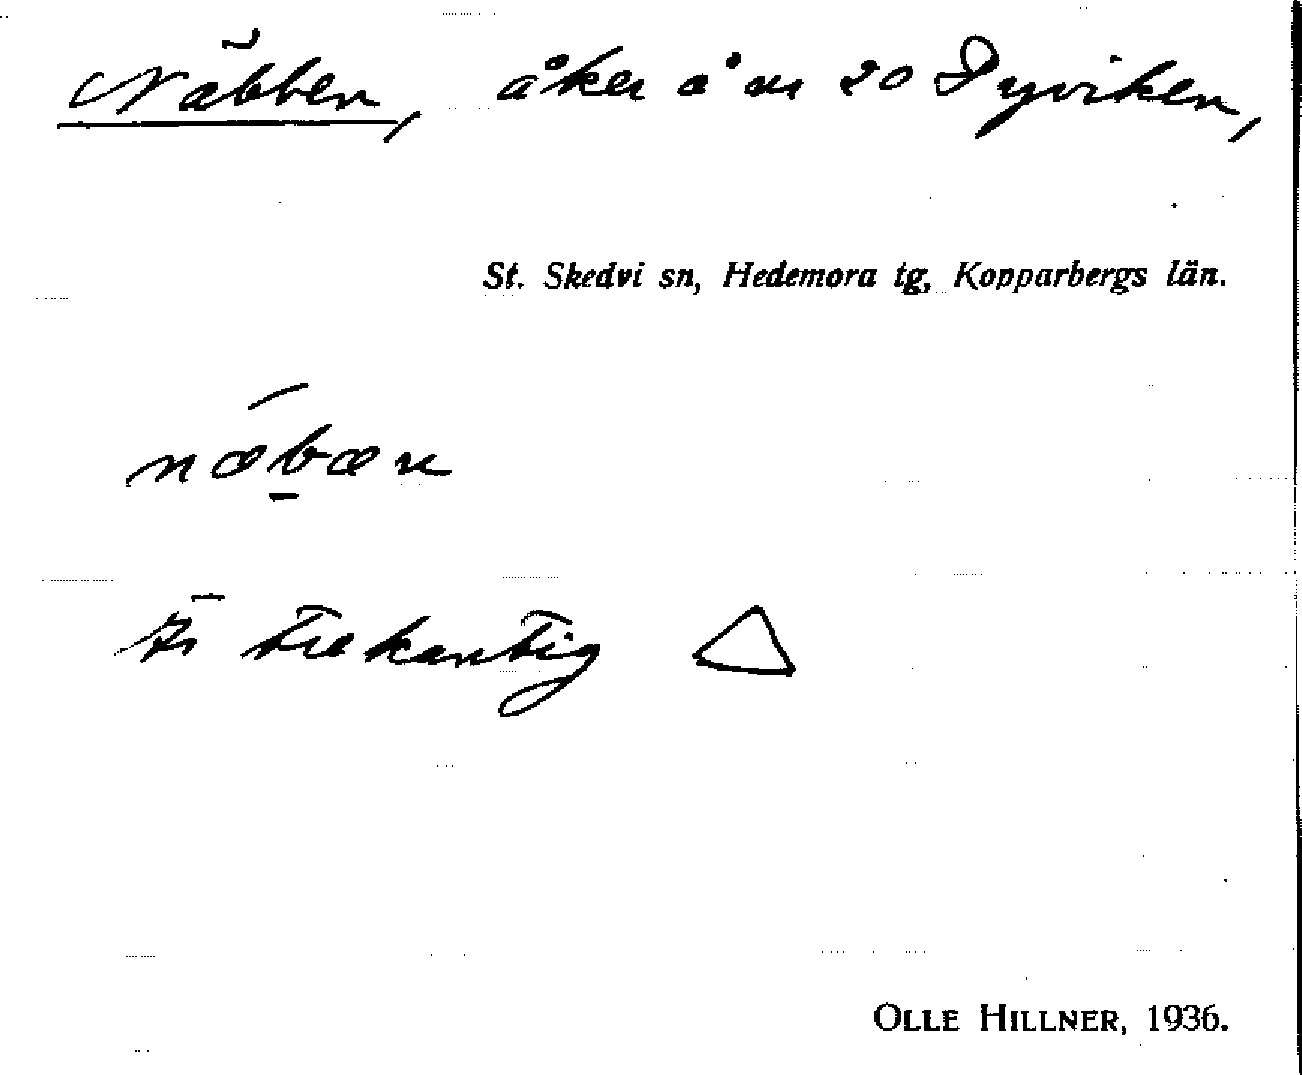 Näbben, åker å nr 20 Dyviken,
St. Skedvi sn, Hedemora tg, Kopparbergs län.
næbæn
Är trekantig
OLLE HILLNER, 1936.